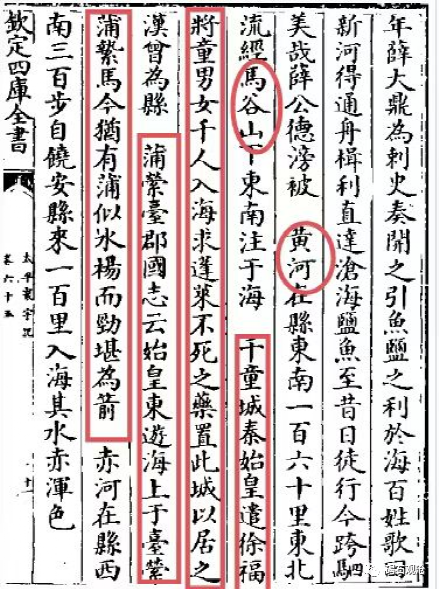 年薛大鼎為刺史奏開之引魚鹽之利於海百姓歌曰
新河得通舟檝利直達滄海鹽魚至昔日徒行今跨駟
美哉薛公德滂被　黄河在縣東南一百六十里東北
流經馬谷山下東南注于海　千童城秦始皇遣徐福
將童男女千人入海求蓬萊不死之藥置此城以居之
漢曾為縣　蒲縈臺郡國志云始皇東遊海上于臺縈
蒲繫馬今猶有蒲似水楊而勁堪為箭　赤河在縣西
南三百步自饒安縣來一百里入海其水赤渾色
欽定四庫全書
太平寰宇記
卷六十五